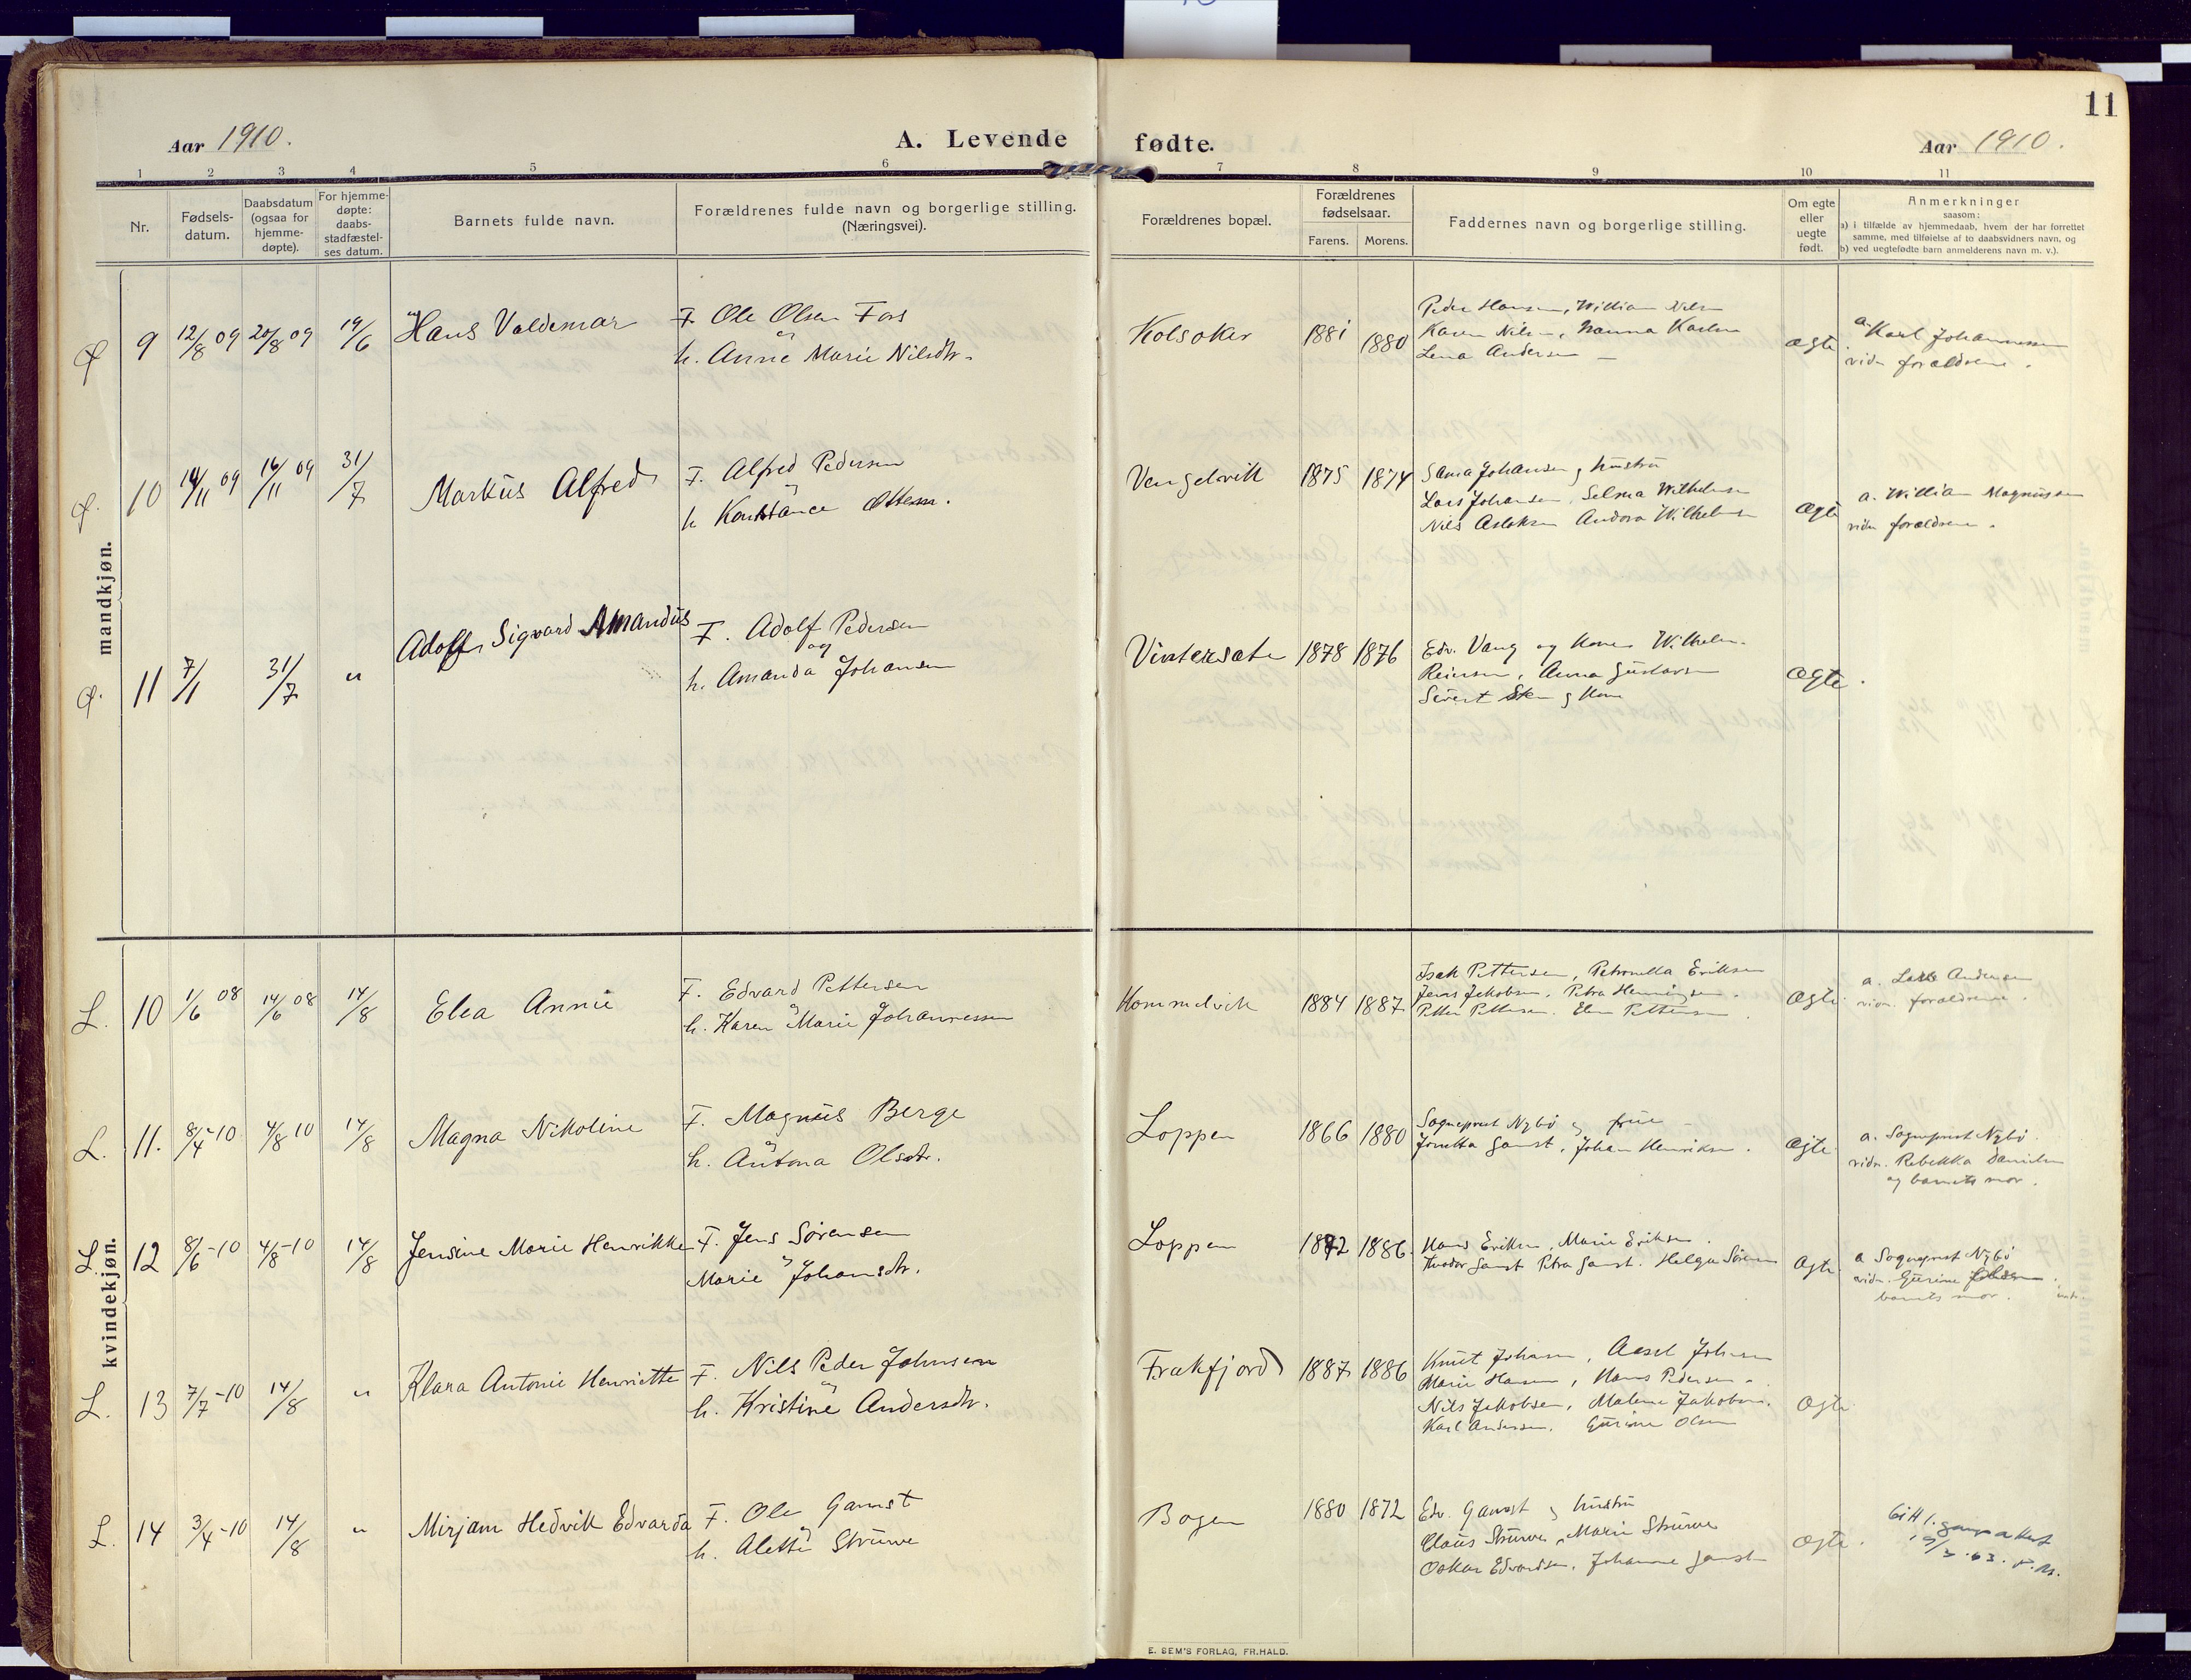 11
Aar 1910.
A. Levende fødte.
Aar 1910.
1 2 3 4 5 6 7 8 9 10 11
Nr.
Fødsels-
datum.
Daabsdatum
(ogsaa for
hjemme-
døpte).
For hjemme-
døpte:
daabs-
stadfæstel-
ses datum.
Barnets fulde navn.
Forældrenes fulde navn og borgerlige stilling.
(Næringsvei).
Forældrenes bopæl.
Forældrenes
fødselsaar.
Farens. Morens.
Faddernes navn og borgerlige stilling.
Om egte
eller
uegte
født.
Anmerkninger
saasom:
a) i tilfælde av hjemmedaab, hvem der har forrettet
samme, med tilføielse af to daabsvidners navn, og
b) ved uegtefødte barn anmelderens navn m. v.).
mandkjøn.
9 12/8 09 20/8 09 19/6 Hans Valdemar
F. Ole Olsen Fos
og
h. Anne Marie Nilsdtr.
Kolsoker 1881 1880
Peder Hansen, William Nilsen
Karen Nilsen, Nanna Karlsen
Lena Andersen
ægte
a. Karl Johannessen
vidn forældrene.
10 14/11 09 16/11 09 31/7 Markus Alfred
F. Alfred Pedersen
h. Konstance Ottesen.
Vengelvik 1875 1874
Johansen og hustru
Lars Johansen, Selma Wilhelmsen
Nils Aslaksen Andora Wilhelmsen
ægte
a. William Magnussen
vidn forældrene.
11 7/1 31/7 " Adolf Sigvard Amandus
F. Adolf Pedersen
og
h. Amanda Johansen
Vintersæte 1878 1876
Edv. Vang og Kone Wilhelm
Reiersen, Anna Gustavsen
Sivert og Kone
ægte.
kvindekjøn.
L. 10 1/6 08 14/6 08 14/8 Elea Annie
F. Edvard Pettersen
h. Karen Marie Johannessen
Kommelvik 1884 1887
Isak Pettersen, Petronella Eriksen
Jens Jakobsen, Petra Henningsen.
Petter Pettersen. Elen Pettersen
ægte
a. Lasse Andersen
vidn. forældrene.
L. 11. 8/4-10 4/8 10 14/8 Magna Nikoline
F. Magnus Berge
h. Antona Olsdtr.
Loppen 1866 1880
Sogneprest Nybø og frue
Jonetta Gamst, Johan Henriksen.
ægte
a. Sogneprest Nybø.
vidn. Rebekka Danielsen
og barnets mor.
L. 12 8/6-10 4/8-10 14/8 Jensine Marie Henrikke
F. Jens Sørensen
Marie Johansdtr.
Loppen 1882 1886.
Hans Eriksen, Marie Eriksen.
Theodor Gamst Petra Gamst. Helga Sørensen
ægte
a Sogneprest Nybø
vidn. Gurine
barnets mor.
L. 13 7/7-10 14/8 " Klara Antonie Henriette
F. Nils Peder Johnsen
og
h. Kristine Andersdtr.
Frakfjord 1887 1886
Knut Johansen, Aksel Johnsen
Marie Hansen, Hans Pedersen.
Nils Jakobsen, Malene Jakobsen.
Karl Andersen. Gurine Olsen
ægte
L. 14 3/4-10 14/8 " Mirjam Hedvik Edvarda
F. Ole Gamst
og
h. Alette Struwe
Bogen 1880 1872
Edv. Gamst og hustru
Claus Struwe, Marie Struwe
Oskar Edvardsen, Johanne Gamst
ægte.
Gitt 1. gangs attest
E. SEM'S FORLAG, FR.HALD.